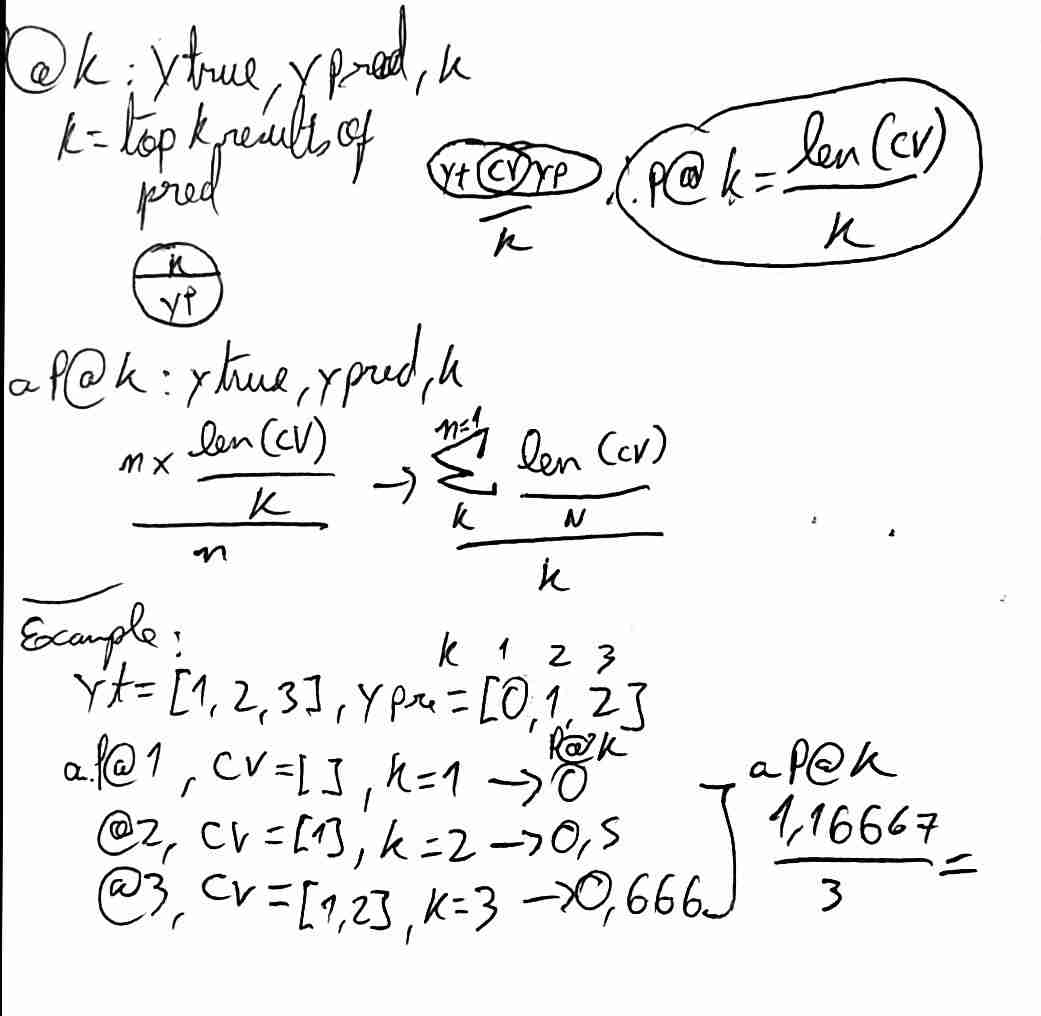 @k: ytrue, ypred, k
k= top k results of
pred
yt cv yp
k
∴ P@k = len(cv)
k
k
yp
aP@k: ytrue, ypred, k
n x len(cv)
k
n
→ n=1 Σ k len(cv)
N
k
Example:
k 1 2 3
yt= [1, 2, 3], ypre = [0, 1, 2]
P@k
a.P@1, cv=[], k=1 → 0
@2, cv=[1], k=2 → 0,5
@3, cv=[1,2], k=3 → 0,666
aP@k
1,16667 =
3